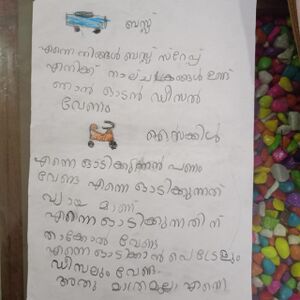 ബസ്സ്
എന്നെ നിങ്ങൾ ബസ്സ് സ്റ്റേപ്പ്
എനിക്ക് നാല്ചക്രങ്ങൾ ഉണ്ട്
ഞാൻ ഓടാൻ ഡീസൽ
വേണം
സൈക്കിൾ
എന്നെ ഓടിക്കുന്നതൻ പണം
വേണ്ട എന്നെ ഓടിക്കുന്നത്
വ്യായ മാണ്
എന്നെ ഓടിക്കുന്നതിന്
താക്കോൽ വേണ്ട
എന്നെ ഓടിക്കാൻ പെട്രോളും
ഡീസലും വേണ്ട
അതു മാത്രമല്ല എന്നെ